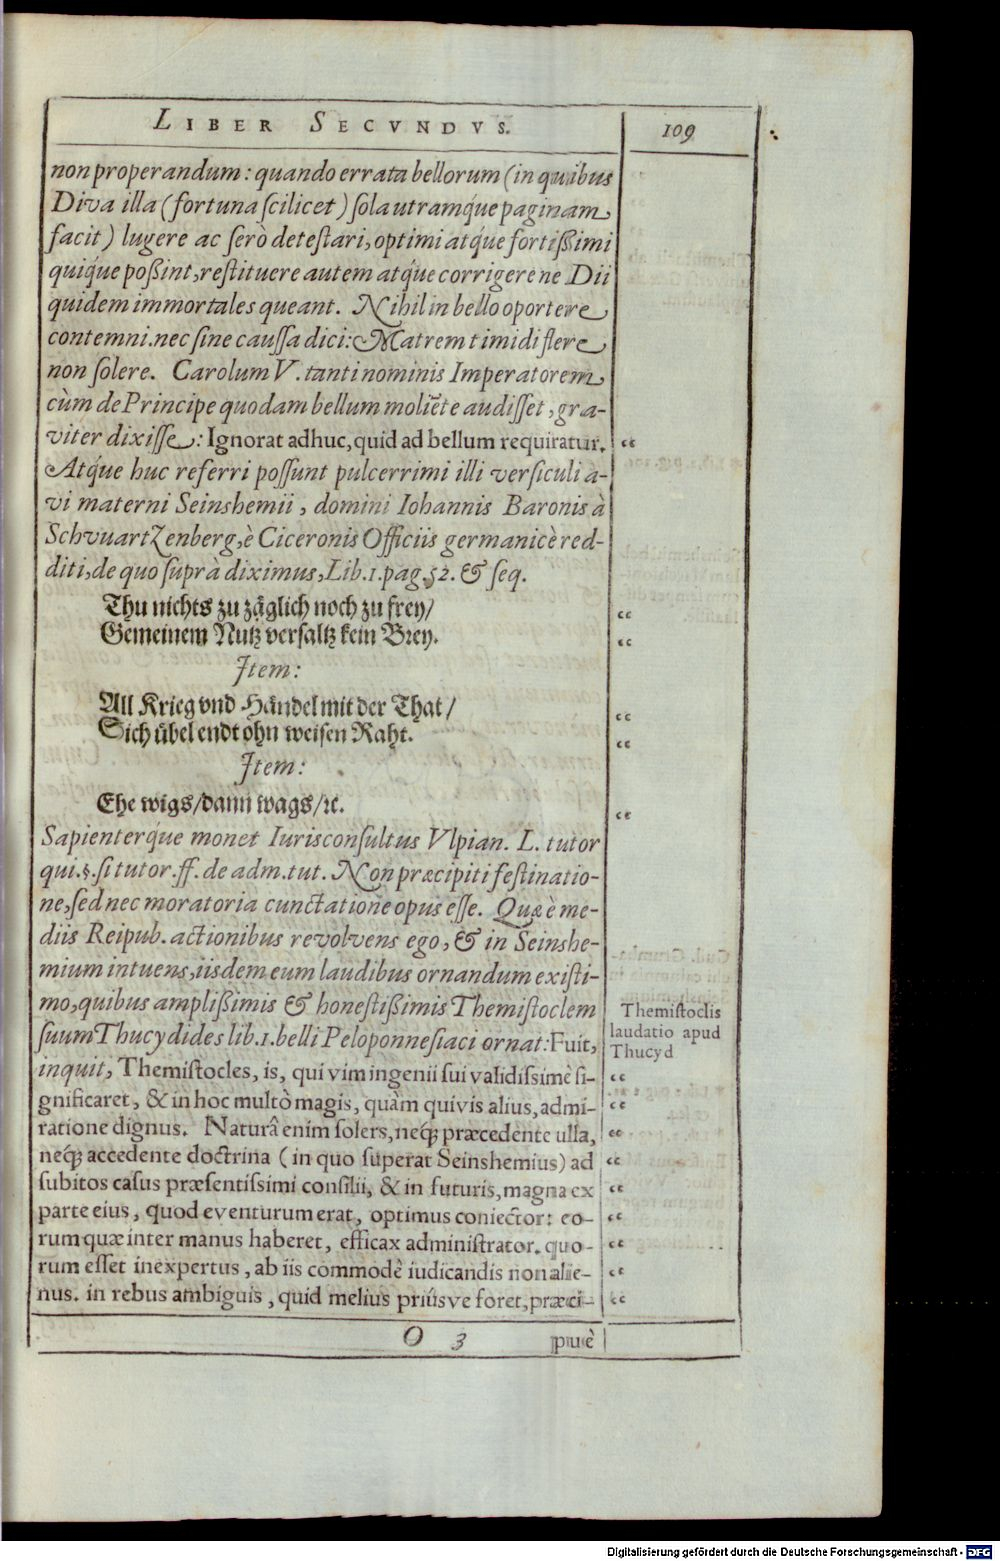 LIBER SECVNDVS.
109
non properandum: quando errata bellorum (in quibus
Diva illa (fortuna scilicet) sola utramq́ue paginam
facit) lugere ac serò detestari, optimi atq́ue fortißimi
quiq́ue poßint, restituere autem atq́ue corrigere ne Dii
quidem immortales queant. Nihil in bello oportere
contemni. nec sine caussa dici: Matrem timidi flere
non solere. Carolum V. tanti nominis Imperatorem,
cùm de Principe quodam bellum moliẽte audisset, gra-
viter dixisse: Ignorat adhuc, quid ad bellum requiratur. “
Atq́ue huc referri possunt pulcerrimi illi versiculi a-
vi materni Seinshemii, domini Iohannis Baronis à
Schvuartzenberg, è Ciceronis Officiis germanicè red-
diti, de quo suprà diximus, Lib. 1. pag. 52. & seq.
Thu nichts zu zäglich noch zu frey/ “
Gemeinem Nutz versaltz kein Brey. “
Item:
All Krieg vnd Händel mit der That/ “
Sich übel endt ohn weisen Raht. “
Item:
Ehe wigs/dann wags/ꝛc. “
Sapienterq́ue monet Iurisconsultus Vlpian. L. tutor
qui. §. si tutor. ff. de adm. tut. Non præcipiti festinatio-
ne, sed nec moratoria cunctatione opus esse. Quæ è me-
diis Reipub. actionibus revolvens ego, & in Seinshe-
mium intuens, iisdem eum laudibus ornandum existi-
mo, quibus amplißimis & honestißimis Themistoclem
suum Thucydides lib. 1. belli Peloponnesiaci ornat: Fuit,
Themistoclis
laudatio apud
Thucyd
inquit, Themistocles, is, qui vim ingenii sui validissimè si- “
gnificaret, & in hoc multò magis, quàm quivis alius, admi- “
ratione dignus. Naturâ enim solers, neq́; præcedente ulla, “
neq́; accedente doctrina (in quo superat Seinshemius) ad “
subitos casus præsentissimi consilii, & in futuris, magna ex “
parte eius, quod eventurum erat, optimus coniector: eo- “
rum quæ inter manus haberet, efficax administrator. quo- “
rum esset inexpertus, ab iis commodè iudicandis non alie- “
nus. in rebus ambiguis, quid melius priúsve foret, præci- “
O 3
puè
Digitalisierung gefördert durch die Deutsche Forschungsgemeinschaft - DFG